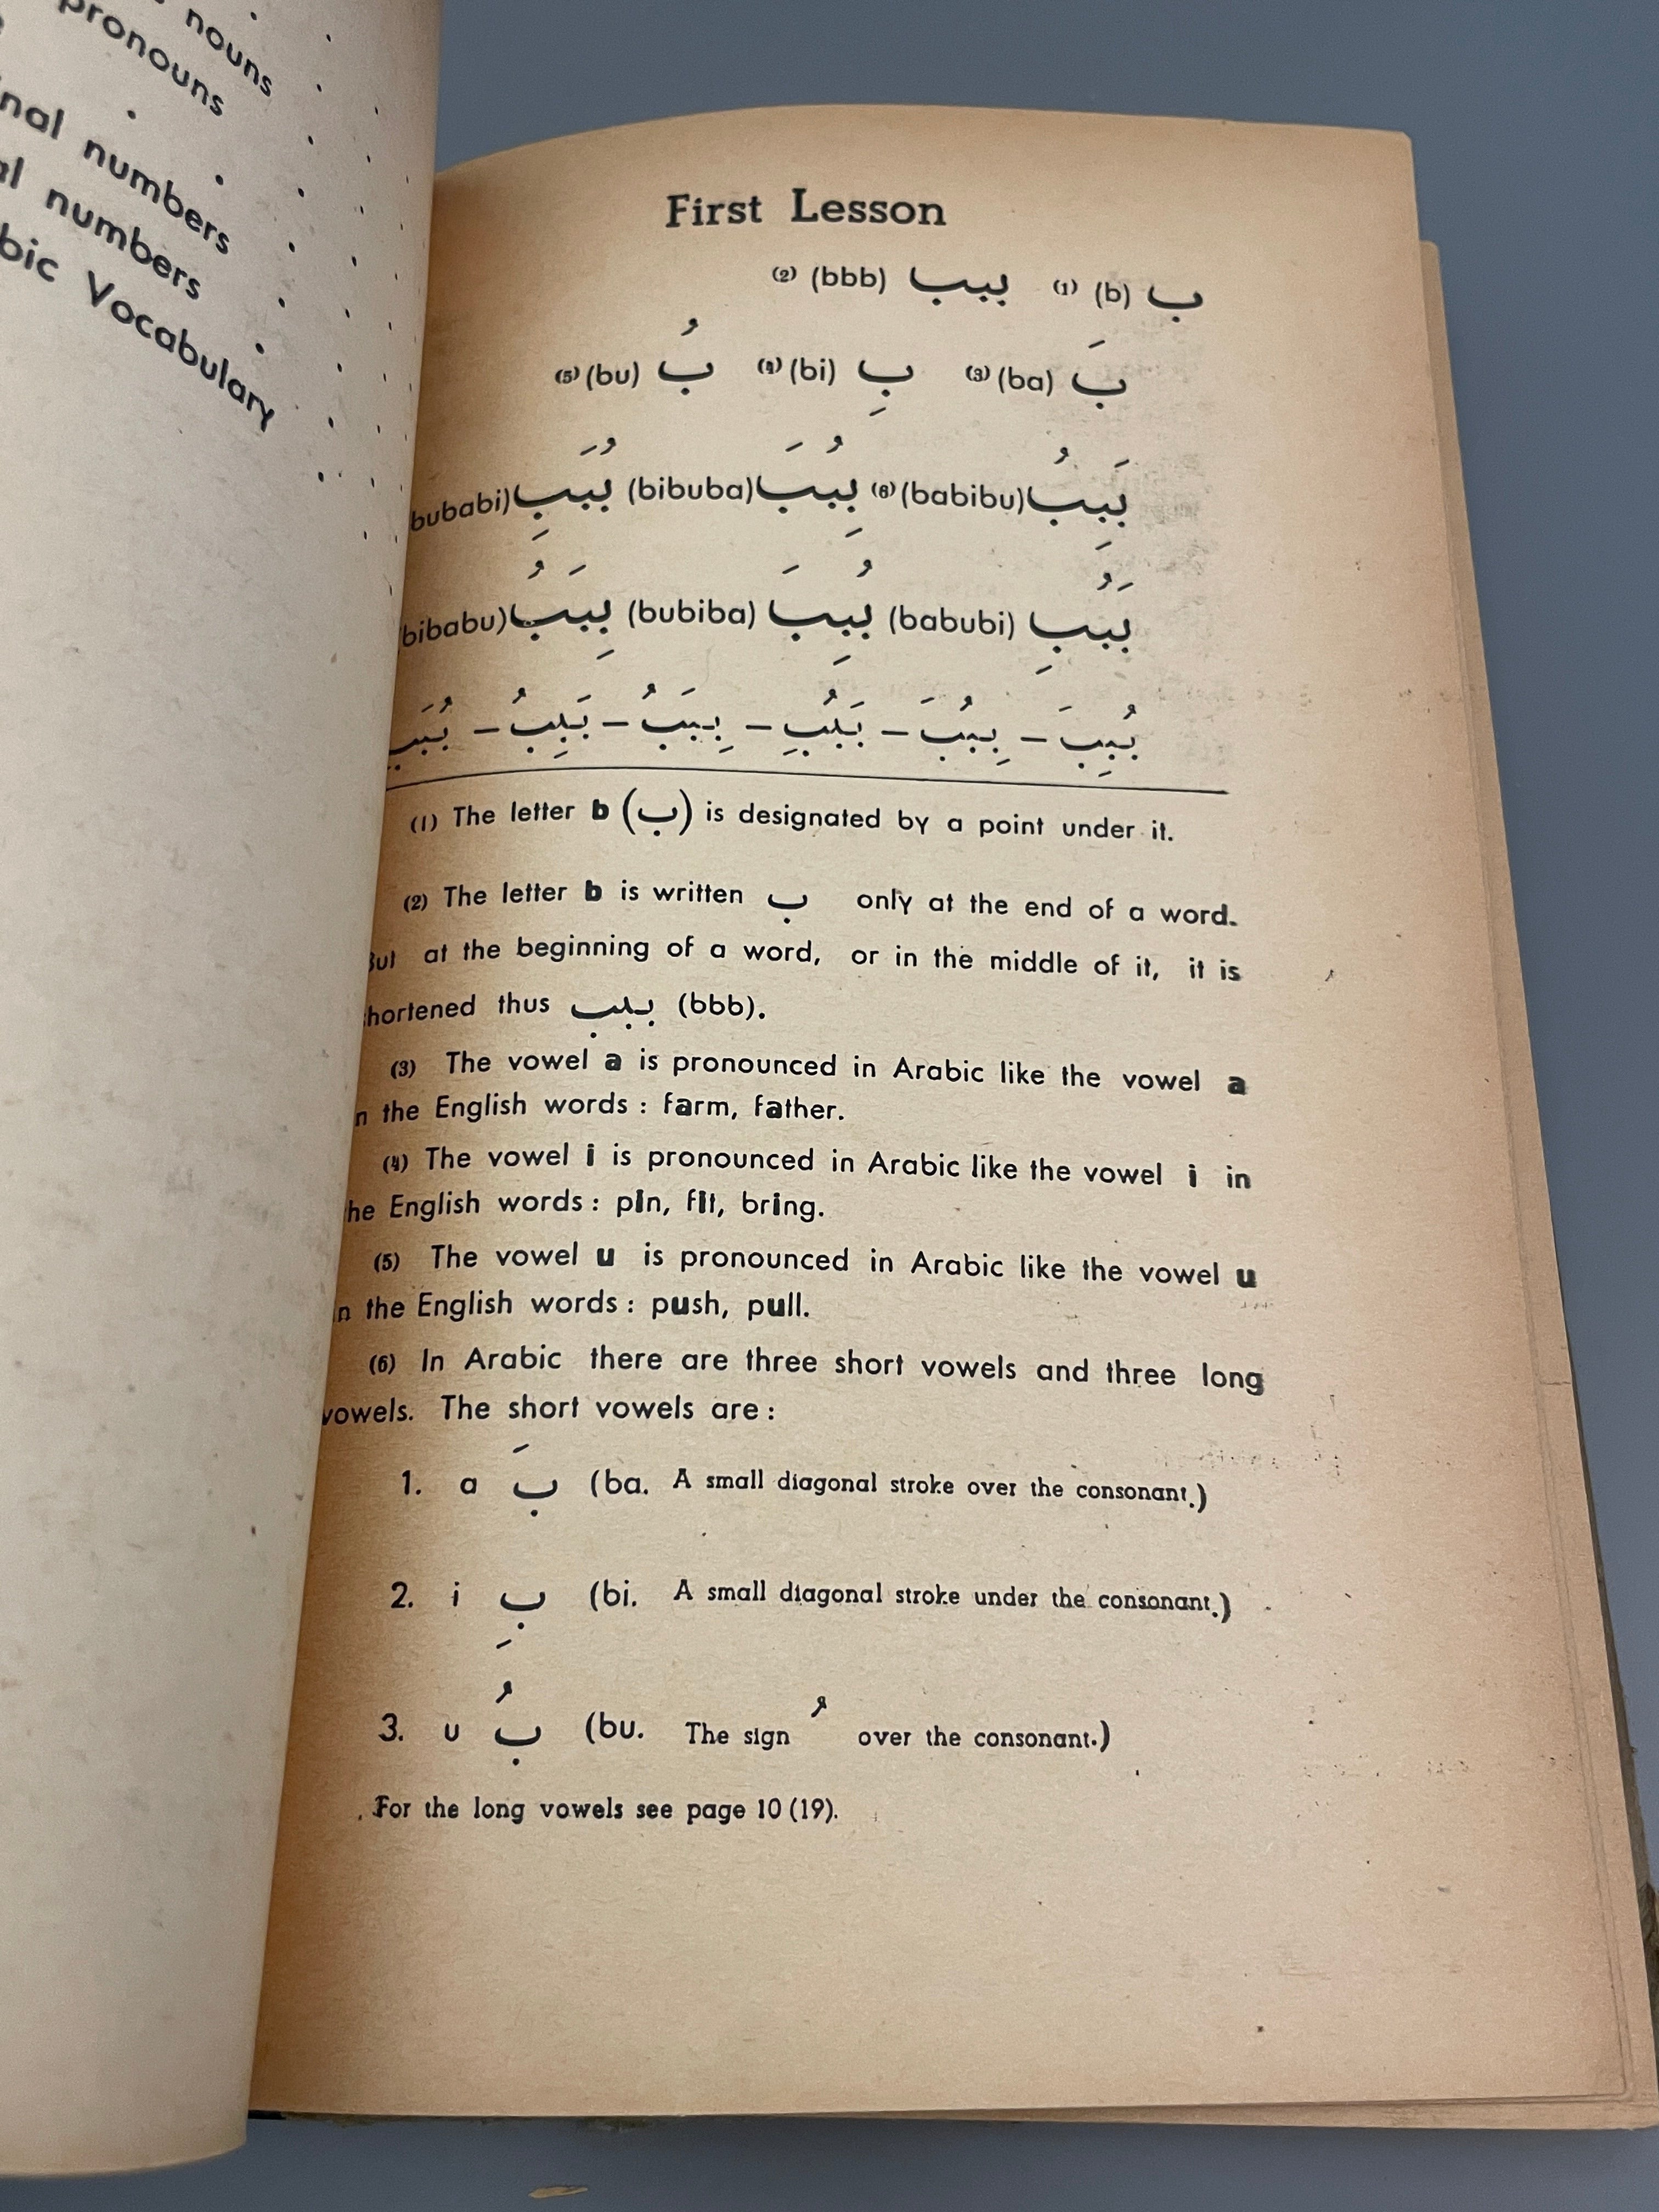 nouns
pronouns
numbers
numbers
Vocabulary
First Lesson
ب (b) (1) ببب (bbb) (2)
بَ (ba) (3) بِ (bi) (4) بُ (bu) (5)
بَبِبُ (babibu) (6) بِبُبَ (bibuba) بُبَبِ bubabi)
بَبُبِ (babubi) بُبِبَ (bubiba) بِبَبُ bibabu)
بُبِبَ — بِبُبَ — بَبُبِ — بِبَبُ — بَبِبُ — بُبَبِ
(1) The letter b (ب) is designated by a point under it.
(2) The letter b is written ب only at the end of a word.
But at the beginning of a word, or in the middle of it, it is
hortened thus ببب (bbb).
(3) The vowel a is pronounced in Arabic like the vowel a
n the English words : farm, father.
(4) The vowel i is pronounced in Arabic like the vowel i in
he English words : pin, fit, bring.
(5) The vowel u is pronounced in Arabic like the vowel u
n the English words : push, pull.
(6) In Arabic there are three short vowels and three long
vowels. The short vowels are :
1. a بَ (ba. A small diagonal stroke over the consonant.)
2. i بِ (bi. A small diagonal stroke under the consonant.)
3. u بُ (bu. The sign ُ over the consonant.)
For the long vowels see page 10 (19).